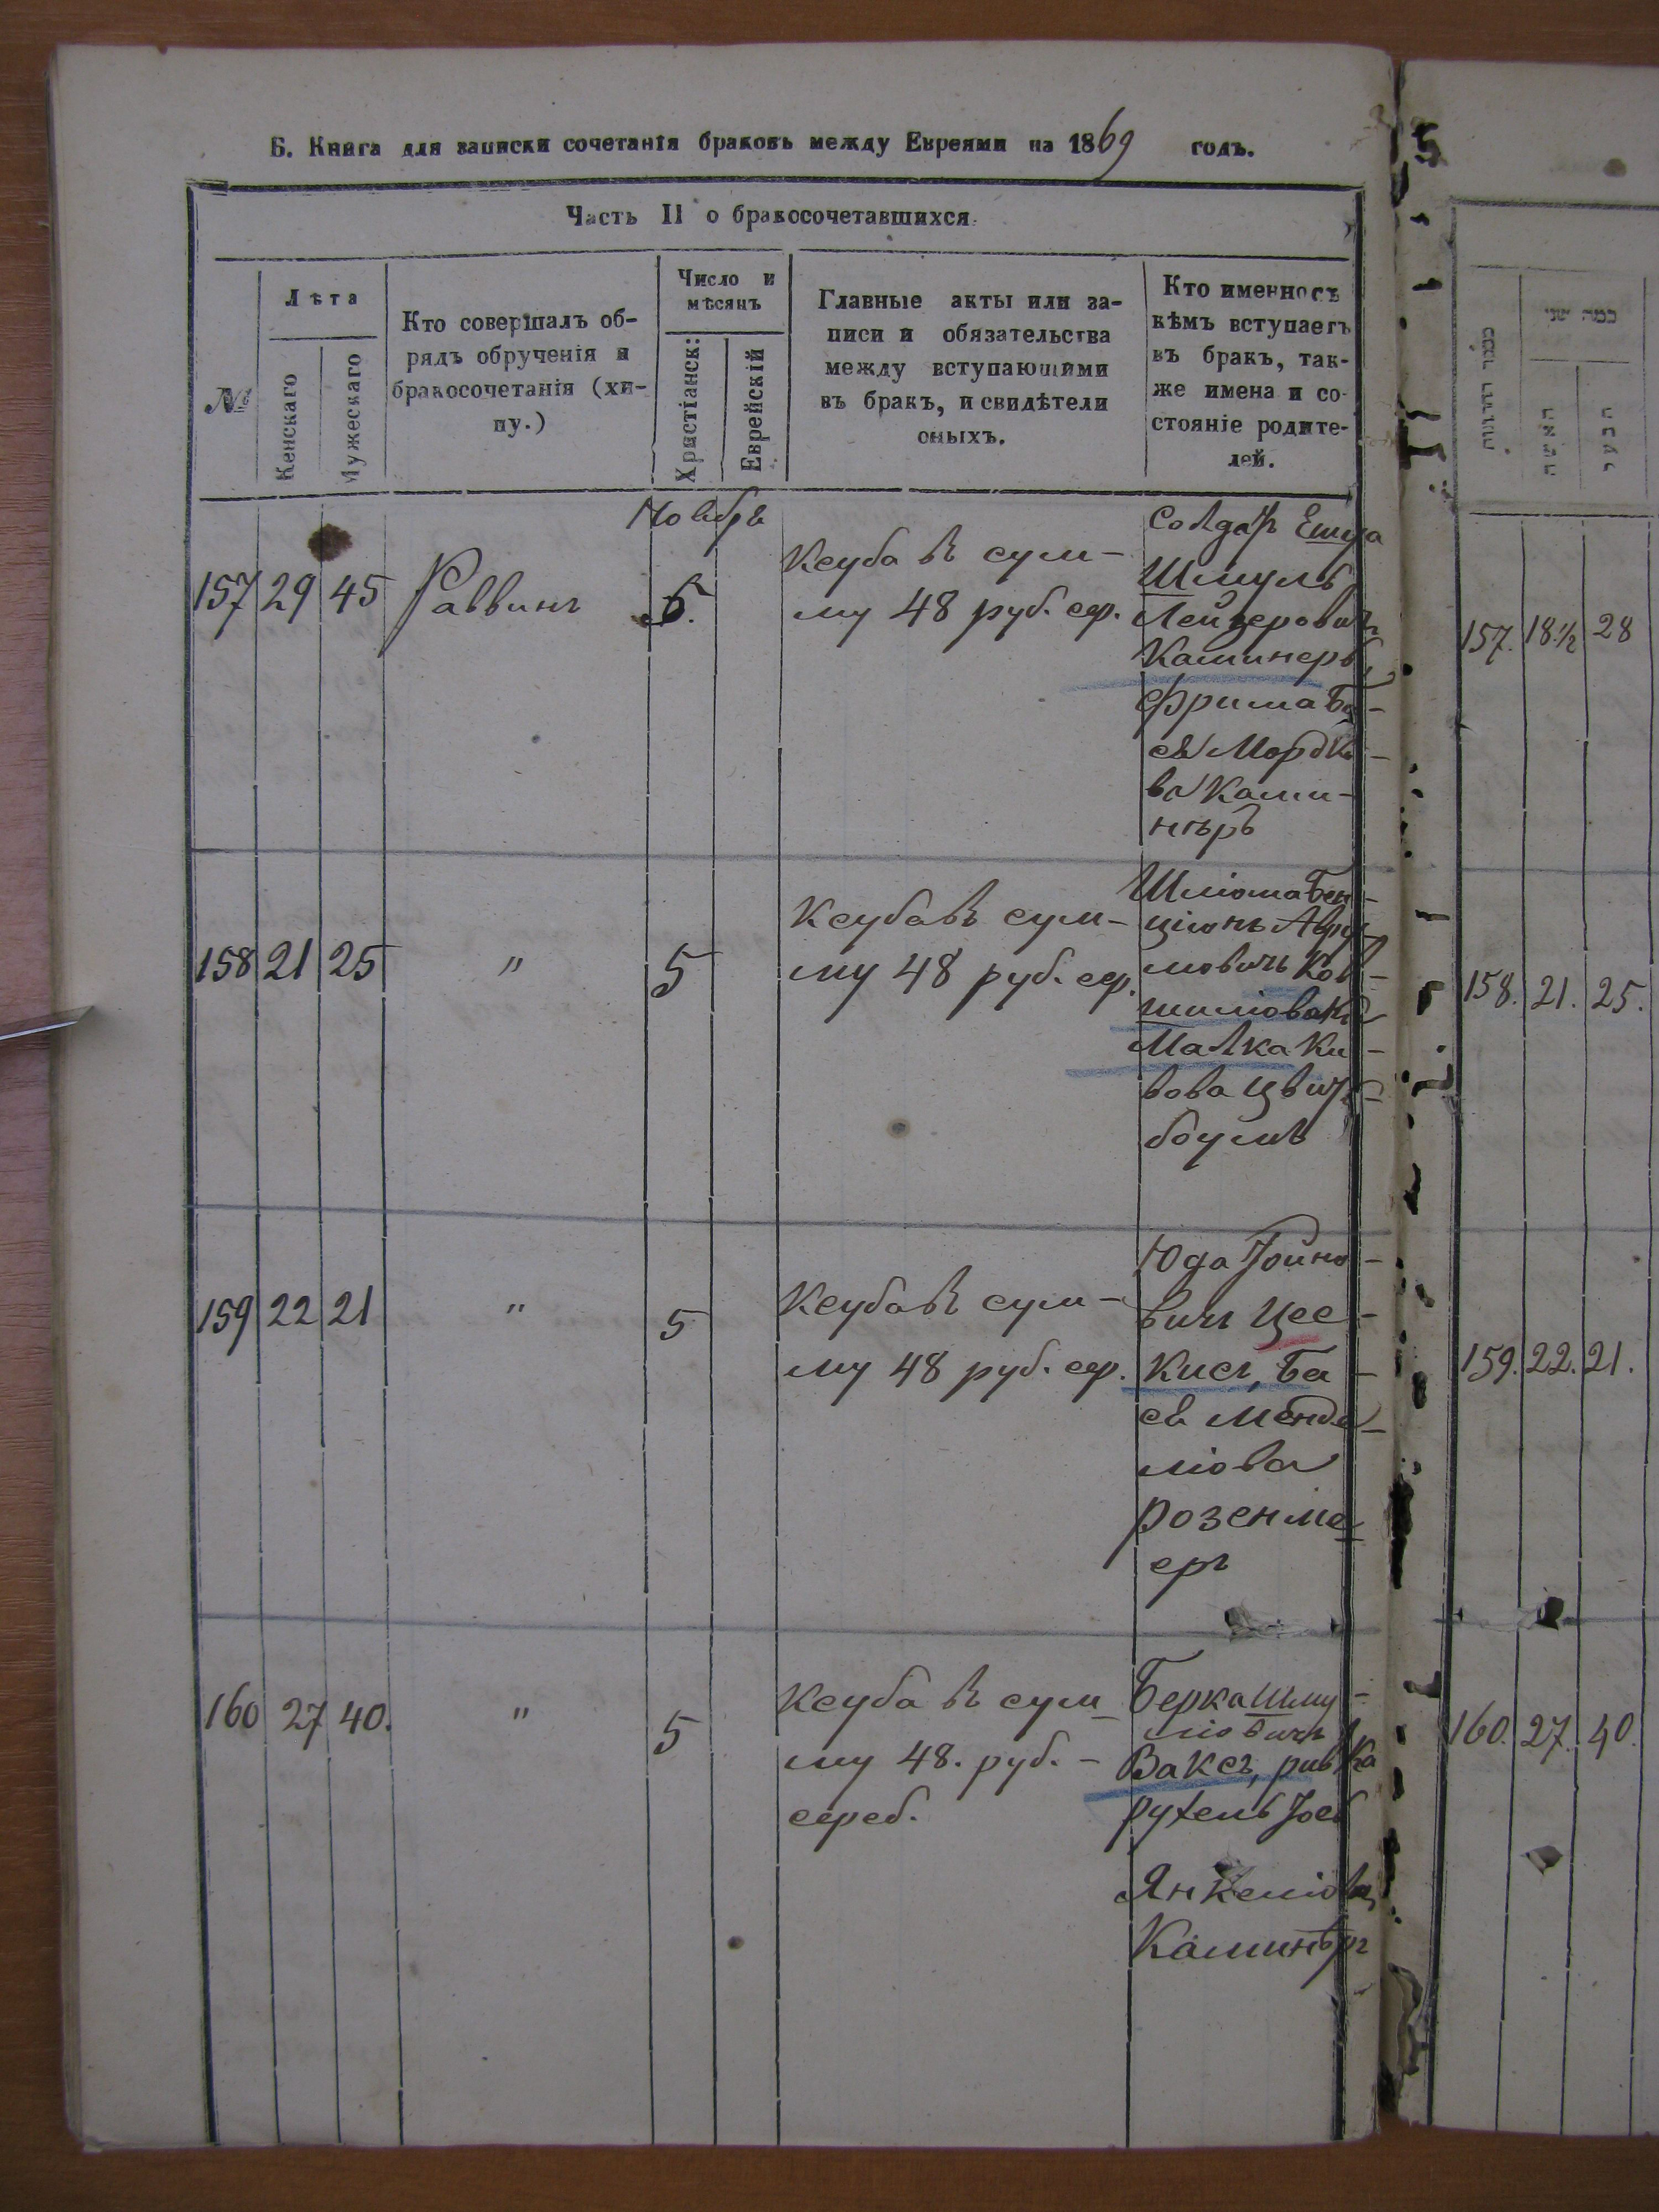 Б. Книга для записки сочетанія браковъ между Евреями на 1869 годъ.
Часть II о бракосочетавшихся
№
Лѣта
Женскаго
Мужескаго
Кто совершалъ об-
рядъ обрученія и
бракосочетанія (хи-
пу.)
Число и
мѣсяцъ
Христіанск:
Еврейскій
Главные акты или за-
писи и обязательства
между вступающими
въ бракъ, и свидѣтели
оныхъ.
Кто именно съ
кѣмъ вступаетъ
въ бракъ, так-
же имена и со-
стояніе родите-
лей.
Ноябрь
157 29 45 Раввинъ 5.
Ксуба въ сум-
му 48 руб. сер.
Солдат
Шмуль
Лейзеровичъ
Каминеръ,
Фрима Ба-
ся Мордко-
ва Ками-
неръ
158 21 25 " 5
Ксуба въ сум-
му 48 руб. сер.
Шліома Бен-
ціонъ Авру-
мовичъ
Малка Ки-
вова Цвит-
боумъ
159 22 21 " 5
Ксуба въ сум-
му 48 руб. сер.
Юда Іойно-
вичъ Цес-
кисъ, Ба-
ся Менде-
ліова
розенме-
еръ
160 27 40. " 5
Ксуба въ сум-
му 48. руб. -
сереб.
Берка Шму-
ліовичъ
Ваксъ, ривка
рухель
Янкеліова
Каминѣръ
כמה שני
האשה
הבעל
157. 18½ 28
158. 21. 25.
159. 22. 21.
160. 27. 40.